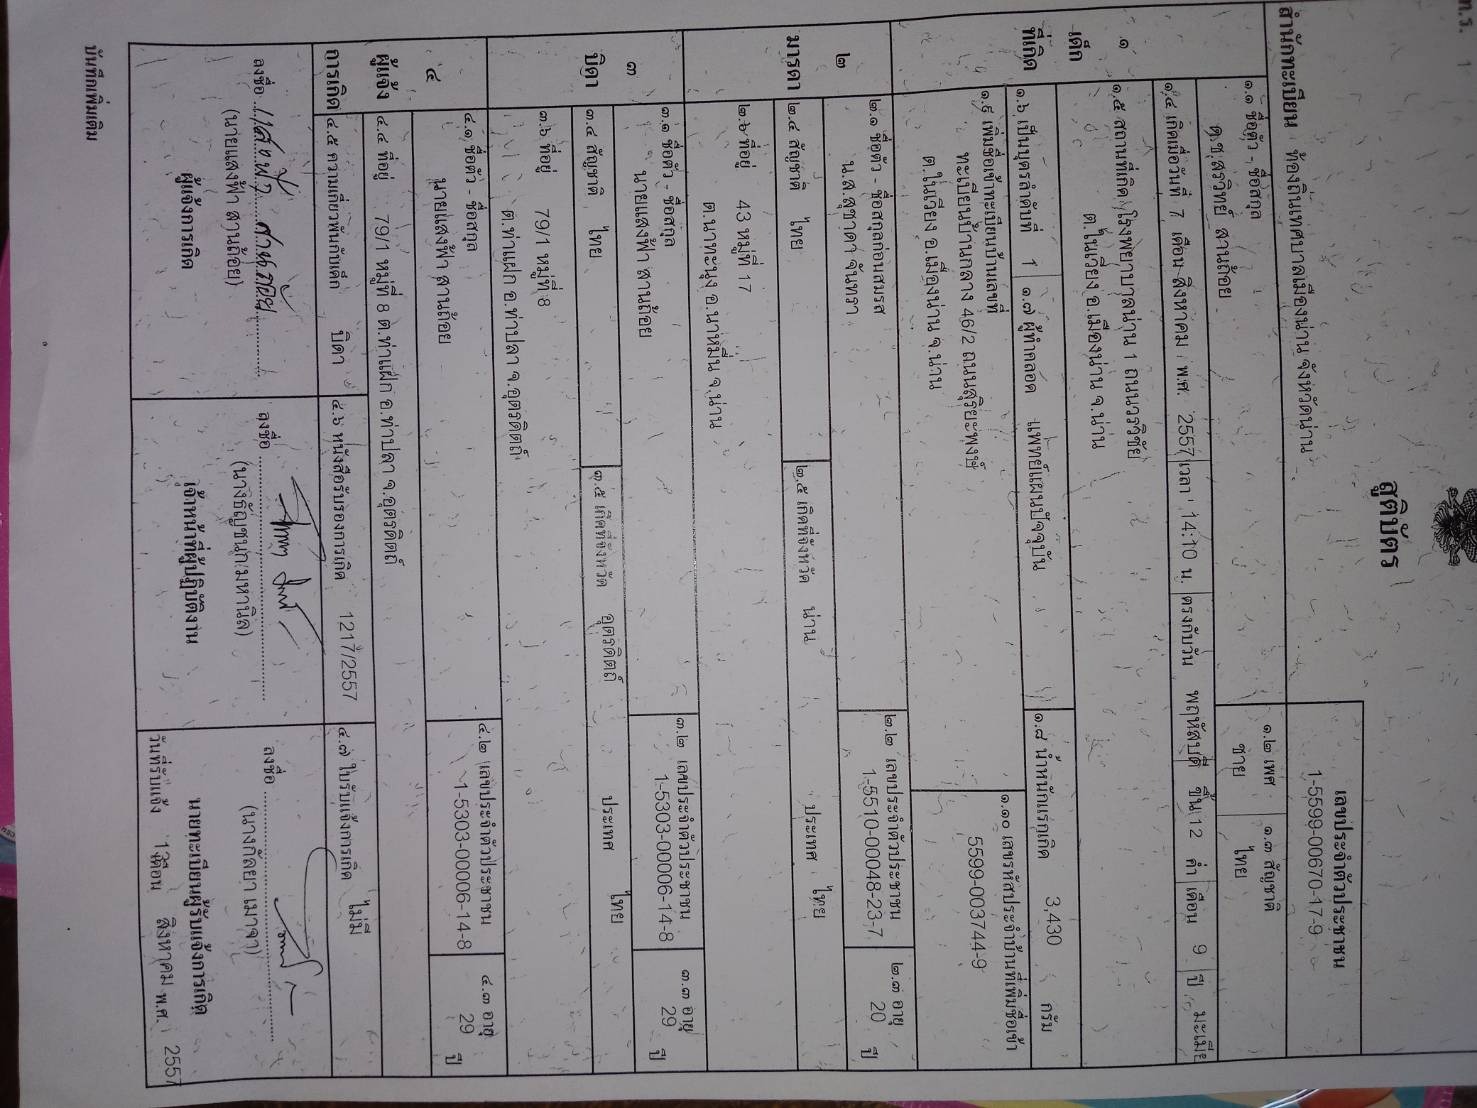 ท.ร. 1
สูติบัตร
เลขประจำตัวประชาชน
1-5599-00670-17-9
สำนักทะเบียน ท้องถิ่นเทศบาลเมืองน่าน จังหวัดน่าน
๑ เด็ก
๑.๑ ชื่อตัว - ชื่อสกุล
ด.ช.สรวิทย์ สานถ้อย
๑.๒ เพศ
ชาย
๑.๓ สัญชาติ
ไทย
๑.๔ เกิดเมื่อวันที่ 7 เดือน สิงหาคม พ.ศ. 2557 เวลา 14:10 น. ตรงกับวัน พฤหัสบดี ขึ้น 12 ค่ำ เดือน 9 ปี มะเมีย
ที่เกิด
๑.๕ สถานที่เกิด โรงพยาบาลน่าน 1 ถนนวรวิชัย
ต.ในเวียง อ.เมืองน่าน จ.น่าน
๑.๖ เป็นบุตรลำดับที่ 1
๑.๗ ผู้ทำคลอด แพทย์แผนปัจจุบัน
๑.๘ น้ำหนักแรกเกิด 3,430 กรัม
๑.๙ เพิ่มชื่อเข้าทะเบียนบ้านเลขที่
ทะเบียนบ้านกลาง 46/2 ถนนสุริยะพงษ์
ต.ในเวียง อ.เมืองน่าน จ.น่าน
๑.๑๐ เลขรหัสประจำบ้านที่เพิ่มชื่อเข้า
5599-003744-9
๒ มารดา
๒.๑ ชื่อตัว - ชื่อสกุลก่อนสมรส
น.ส.สุชาดา จันทรา
๒.๒ เลขประจำตัวประชาชน
1-5510-00048-23-7
๒.๓ อายุ
20 ปี
๒.๔ สัญชาติ ไทย
๒.๕ เกิดที่จังหวัด น่าน ประเทศ ไทย
๒.๖ ที่อยู่ 43 หมู่ที่ 17
ต.นาทะนุง อ.นาหมื่น จ.น่าน
๓ บิดา
๓.๑ ชื่อตัว - ชื่อสกุล
นายแสงฟ้า สานถ้อย
๓.๒ เลขประจำตัวประชาชน
1-5303-00006-14-8
๓.๓ อายุ
29 ปี
๓.๔ สัญชาติ ไทย
๓.๕ เกิดที่จังหวัด อุตรดิตถ์ ประเทศ ไทย
๓.๖ ที่อยู่ 79/1 หมู่ที่ 8
ต.ท่าแฝก อ.ท่าปลา จ.อุตรดิตถ์
๔ ผู้แจ้งการเกิด
๔.๑ ชื่อตัว - ชื่อสกุล
นายแสงฟ้า สานถ้อย
๔.๒ เลขประจำตัวประชาชน
1-5303-00006-14-8
๔.๓ อายุ
29 ปี
๔.๔ ที่อยู่ 79/1 หมู่ที่ 8 ต.ท่าแฝก อ.ท่าปลา จ.อุตรดิตถ์
๔.๕ ความเกี่ยวพันกับเด็ก บิดา
๔.๖ หนังสือรับรองการเกิด 1217/2557
๔.๗ ใบรับแจ้งการเกิด ไม่มี
ลงชื่อ แสงฟ้า สานถ้อย
(นายแสงฟ้า สานถ้อย)
ผู้แจ้งการเกิด
ลงชื่อ
(นางธัญชนก มหานิล)
เจ้าหน้าที่ผู้ปฏิบัติงาน
ลงชื่อ
(นางกัลยา เมาจา)
นายทะเบียนผู้รับแจ้งการเกิด
วันที่รับแจ้ง เดือน สิงหาคม พ.ศ. 2557
บันทึกเพิ่มเติม